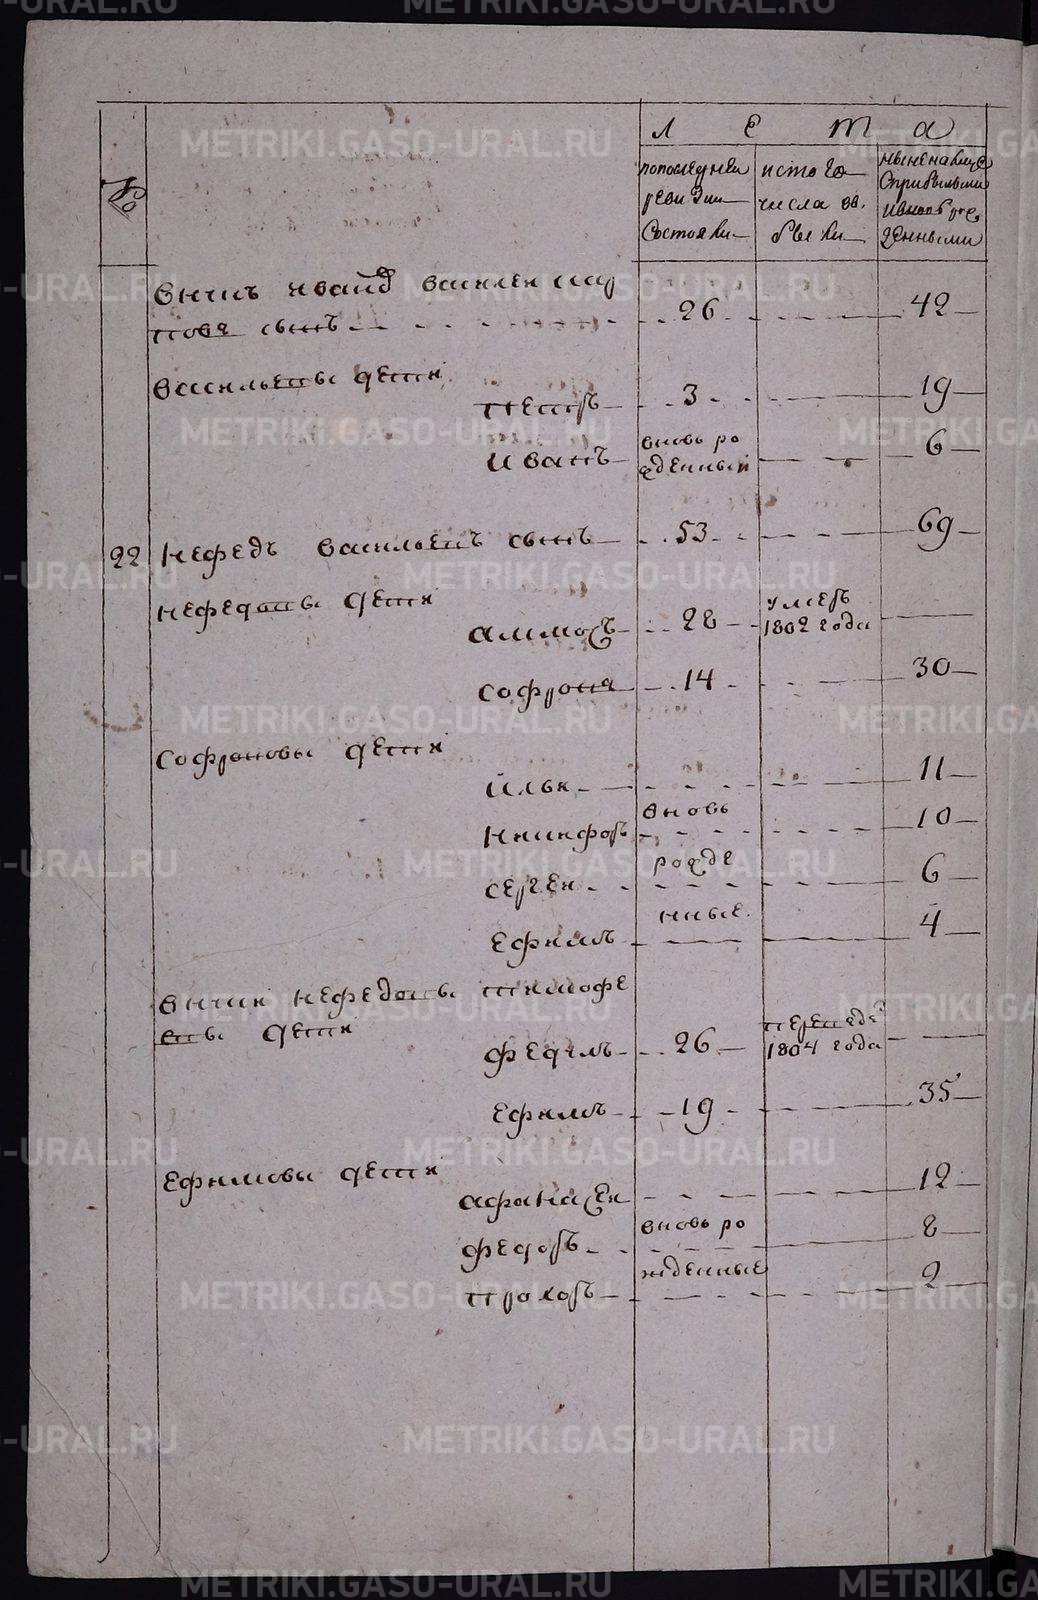 №
Л е т а
попоследней
ревизии
Состояли
истого
числа вы
были
ныне налице
Сприбылыми
ивновь ро
жденными
внукъ иванъ василей кар
повъ сынъ 26 42
васильевы дети
петръ 3 19
вновь ро
жденный
иванъ 6
22 нефедъ васильевъ сынъ 53 69
нефедовы дети
аммосъ 28 умеръ
1802 года
софронъ 14 30
софроновы дети
илья 11
вновь
никифоръ 10
рожде
сергей 6
нные
ефимъ 4
внуки нефедовы тимофе
евы дети
федулъ 26 переведе
1804 года
ефимъ 19 35
ефимовы дети
афанасей 12
вновь ро
федоръ 8
жденные
прохоръ 2
METRIKI.GASO-URAL.RU